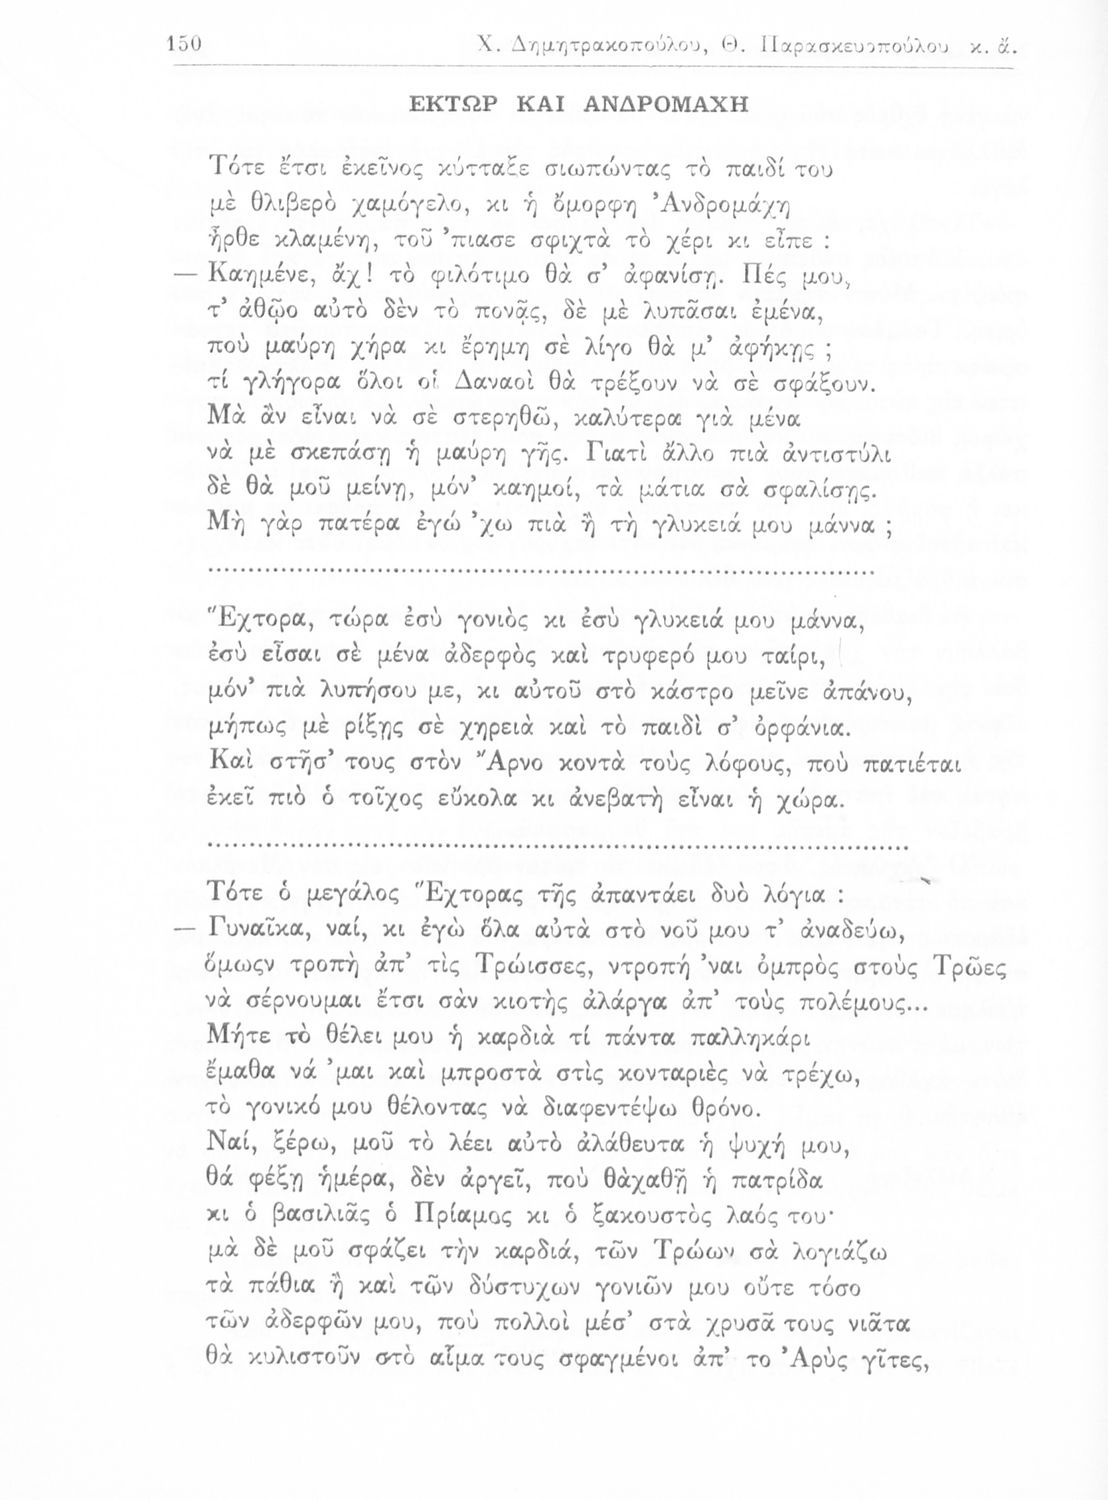 150 Χ. Δημητρακοπούλου, Θ. Παρασκευοπούλου κ. ἄ.
ΕΚΤΩΡ ΚΑΙ ΑΝΔΡΟΜΑΧΗ
Τότε ἔτσι ἐκεῖνος κύτταξε σιωπώντας τὸ παιδί του
μὲ θλιβερὸ χαμόγελο, κι ἡ ὄμορφη Ἀνδρομάχη
ἦρθε κλαμένη, τοῦ ’πιασε σφιχτὰ τὸ χέρι κι εἶπε :
— Καημένε, ἄχ! τὸ φιλότιμο θὰ σ’ ἀφανίσῃ. Πές μου,
τ’ ἀθῷο αὐτὸ δὲν τὸ πονᾷς, δὲ μὲ λυπᾶσαι ἐμένα,
ποὺ μαύρη χήρα κι ἔρημη σὲ λίγο θὰ μ’ ἀφήκῃς ;
τί γλήγορα ὅλοι οἱ Δαναοὶ θὰ τρέξουν νὰ σὲ σφάξουν.
Μὰ ἂν εἶναι νὰ σὲ στερηθῶ, καλύτερα γιὰ μένα
νὰ μὲ σκεπάσῃ ἡ μαύρη γῆς. Γιατὶ ἄλλο πιὰ ἀντιστύλι
δὲ θὰ μοῦ μείνῃ, μόν’ καημοί, τὰ μάτια σὰ σφαλίσῃς.
Μὴ γὰρ πατέρα ἐγώ ’χω πιὰ ἢ τὴ γλυκειά μου μάννα ;
..........................................................................
Ἕχτορα, τώρα ἐσὺ γονιὸς κι ἐσὺ γλυκειά μου μάννα,
ἐσὺ εἶσαι σὲ μένα ἀδερφὸς καὶ τρυφερό μου ταίρι,
μόν’ πιὰ λυπήσου με, κι αὐτοῦ στὸ κάστρο μεῖνε ἀπάνου,
μήπως μὲ ρίξῃς σὲ χηρειὰ καὶ τὸ παιδὶ σ’ ὀρφάνια.
Καὶ στῆσ’ τους στὸν Ἄρνο κοντὰ τοὺς λόφους, ποὺ πατιέται
ἐκεῖ πιὸ ὁ τοῖχος εὔκολα κι ἀνεβατὴ εἶναι ἡ χώρα.
..........................................................................
Τότε ὁ μεγάλος Ἕχτορας τῆς ἀπαντάει δυὸ λόγια :
— Γυναῖκα, ναί, κι ἐγὼ ὅλα αὐτὰ στὸ νοῦ μου τ’ ἀναδεύω,
ὅμωςν τροπὴ ἀπ’ τὶς Τρώισσες, ντροπή ’ναι ὀμπρὸς στοὺς Τρῶες
νὰ σέρνουμαι ἔτσι σὰν κιοτὴς ἀλάργα ἀπ’ τοὺς πολέμους...
Μήτε τὸ θέλει μου ἡ καρδιὰ τί πάντα παλληκάρι
ἔμαθα νά ’μαι καὶ μπροστὰ στὶς κονταριὲς νὰ τρέχω,
τὸ γονικό μου θέλοντας νὰ διαφεντέψω θρόνο.
Ναί, ξέρω, μοῦ τὸ λέει αὐτὸ ἀλάθευτα ἡ ψυχή μου,
θά φέξῃ ἡμέρα, δὲν ἀργεῖ, ποὺ θἀχαθῇ ἡ πατρίδα
κι ὁ βασιλιᾶς ὁ Πρίαμος κι ὁ ξακουστὸς λαός του·
μὰ δὲ μοῦ σφάζει τὴν καρδιά, τῶν Τρώων σὰ λογιάζω
τὰ πάθια ἢ καὶ τῶν δύστυχων γονιῶν μου οὔτε τόσο
τῶν ἀδερφῶν μου, ποὺ πολλοὶ μέσ’ στὰ χρυσᾶ τους νιᾶτα
θὰ κυλιστοῦν στὸ αἷμα τους σφαγμένοι ἀπ’ το Ἀρὺς γῖτες,